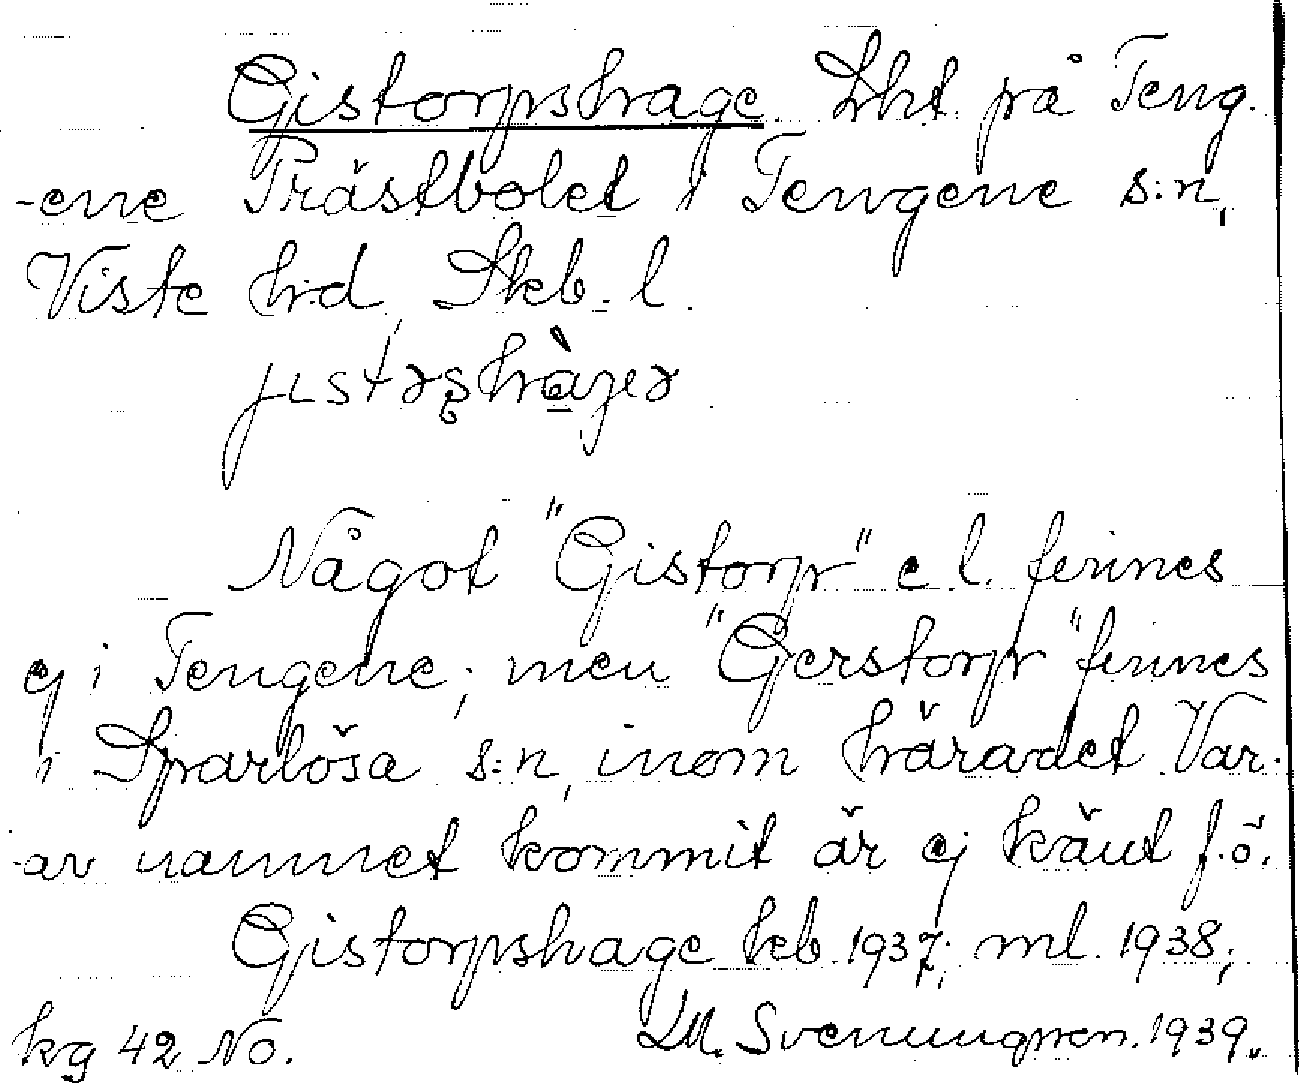 Gistorpshage. Lht. på Teng-
-ene Prästbolet i Tengene s:n,
Viste hrd, Skb. l.
Något "Gistorp" e l. finnes
ej i Tengene; men "Gerstorp" finnes
i Sparlösa s:n, inom häradet. Var-
-av namnet kommit är ej känt f.ö.
Gistorpshage kb. 1937; ml. 1938;
kg 42 No. LM. Svenungsson. 1939.